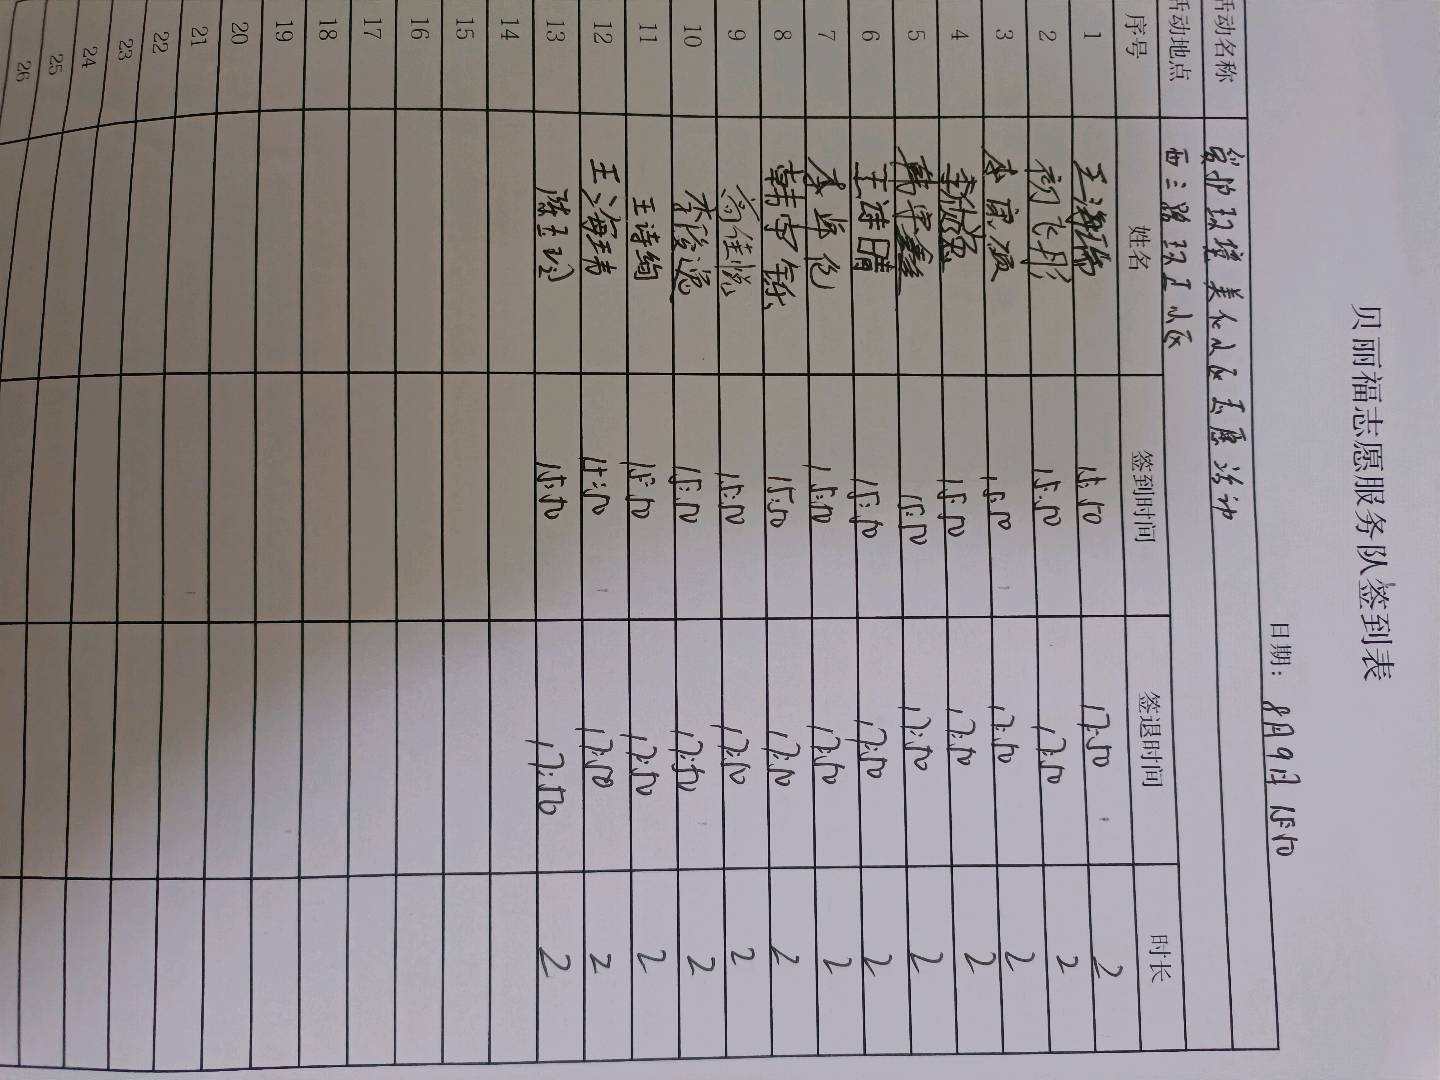 贝丽福志愿服务队签到表
日期: 8月9日 15:50
活动名称 爱护环境 美化小区志愿活动
活动地点 西三路 小区
序号 姓名 签到时间 签退时间 时长
1 王海瑞 15:50 17:50 2
2 初飞彤 15:50 17:50 2
3 15:50 17:50 2
4 15:50 17:50 2
5 韩宇鑫 15:50 17:50 2
6 王诗晴 15:50 17:50 2
7 15:50 17:50 2
8 韩守钰 15:50 17:50 2
9 尚佳悦 15:50 17:50 2
10 李俊逸 15:50 17:50 2
11 王诗绚 15:50 17:50 2
12 王海玮 15:50 17:50 2
13 陈玉玲 15:50 17:50 2
14
15
16
17
18
19
20
21
22
23
24
25
26